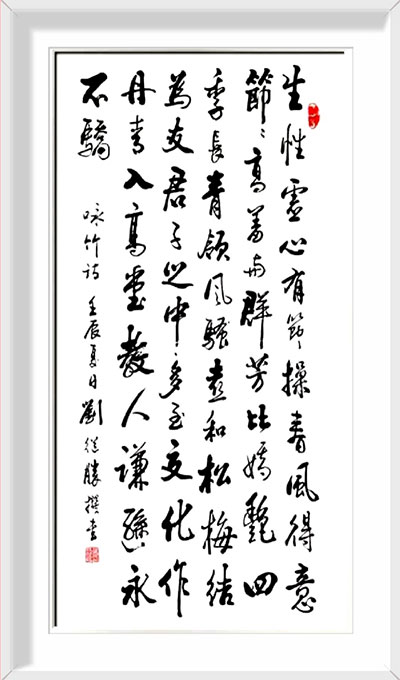 生性虛心有節操春風得意
節〻高羞与群芳比嬌艷四
季長青領風騷喜和松梅結
為友君子之中多至交化作
丹青入高堂教人謙遜永
不驕
咏竹诗 壬辰夏日 劉從勝撰書